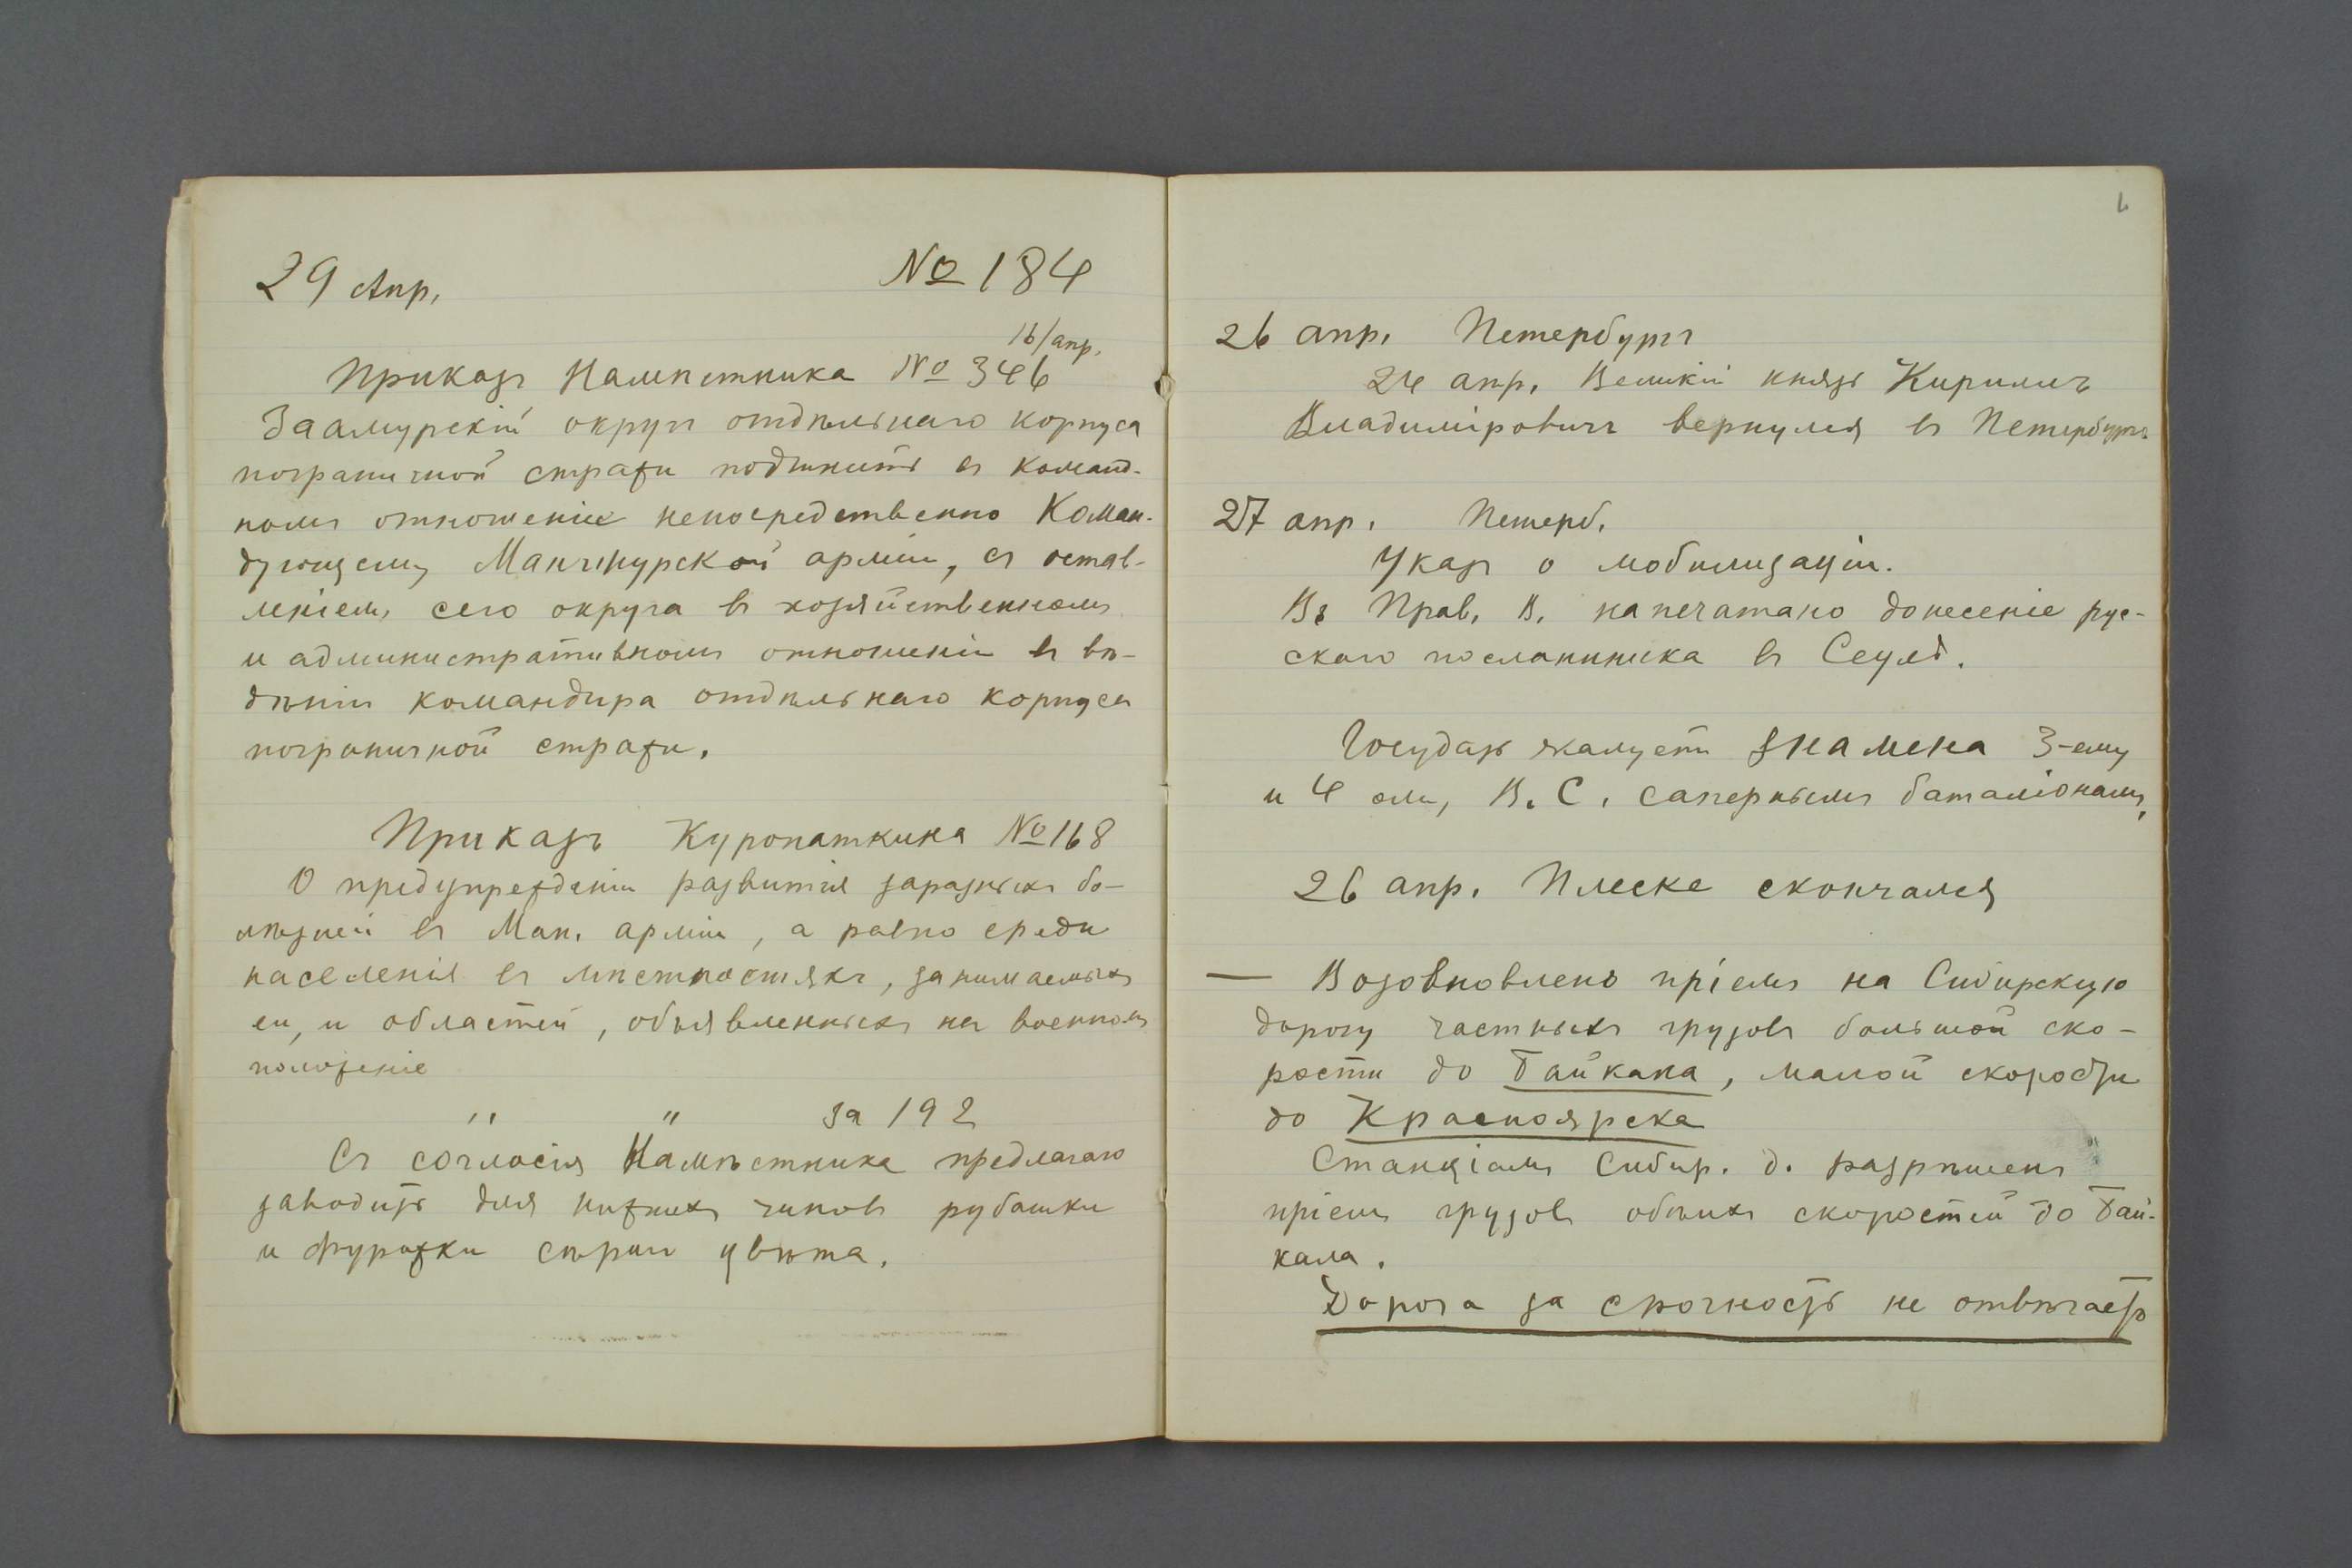 29 Апр. № 184
16/апр.
Приказъ Намѣстника № 346
Заамурскій округъ отдѣльнаго корпуса
пограничной стражи подчинить въ команд-
номъ отношеніе непосредственно Коман-
дующему Манчжурской арміи, съ остав-
леніемъ сего округа въ хозяйственномъ
и административномъ отношеніи въ вѣ-
дѣніи командира отдѣльнаго корпуса
пограничной стражи.
Приказъ Куропаткина № 168
О предупрежденіи развитія заразныхъ бо-
лѣзней въ Ман. арміи, а равно среди
населенія въ мѣстностяхъ, занимаемыхъ
ею, и областей, объявленныхъ на военномъ
положеніе
" " за 192
Съ согласія Намѣстника предлагаю
заводить для нижнихъ чиновъ рубашки
и фуражки сѣраго цвѣта.
26 апр. Петербургъ
24 апр. Великій князь Кириллъ
Владиміровичъ вернулся въ Петербургъ
27 апр. Петерб.
Указъ о мобилизаціи.
Въ Прав. В. напечатано донесеніе рус-
скаго посланника въ Сеулѣ.
Государь жалуетъ знамена 3-ему
и 4 ому В. С. сапернымъ баталіонамъ,
26 апр. Плеске скончался
— Возобновленъ пріемъ на Сибирскую
дорогу частныхъ грузовъ большой ско-
рости до Байкала, малой скорости
до Красноярска
Станціямъ Сибир. д. разрѣшенъ
пріемъ грузовъ обѣихъ скоростей до Бай-
кала.
Дорога за срочность не отвѣчаетъ